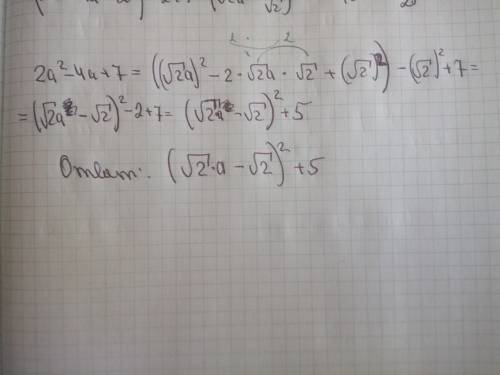 2a²-4a+7 = ((√2a)² - 2·√2a·√2 + (√2)²) - (√2)² + 7 =
= (√2a - √2)² - 2 + 7 = (√2a - √2)² + 5
Ответ: (√2·a - √2)² + 5